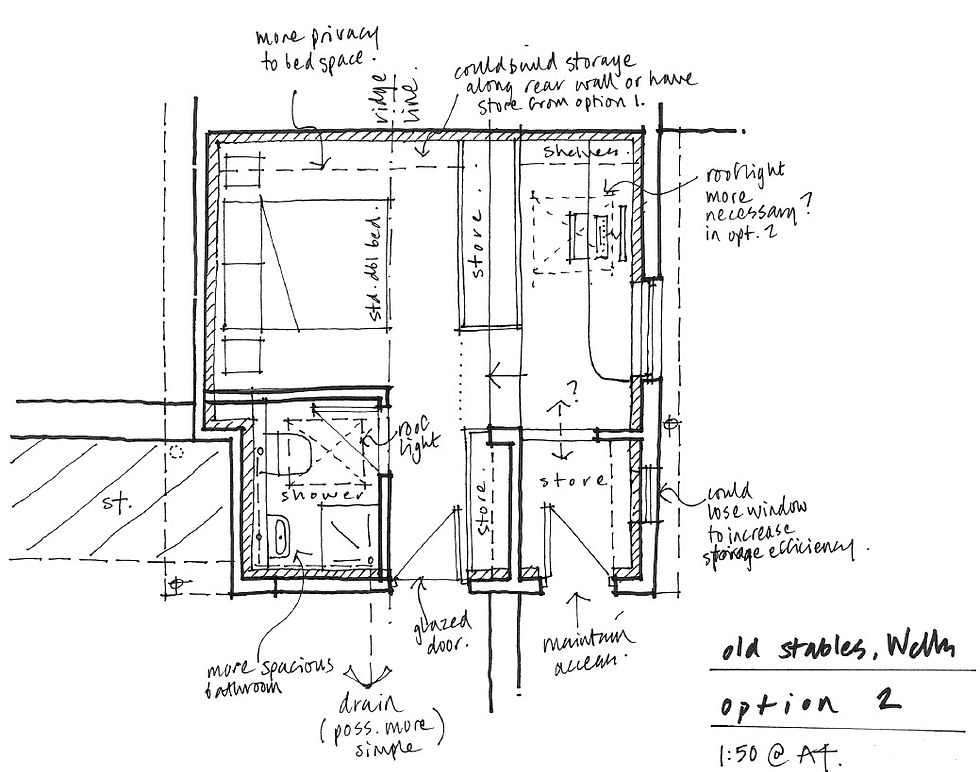 more privacy
to bedspace.
ridge
line.
could build storage
along rear wall or have
store from option 1.
shelves.
rooflight
more
necessary?
in opt. 2
std. dbl bed.
store.
?
roof
light
shower
store.
store
st.
could
lose window
to increase
storage efficiency.
glazed
door.
maintain
access.
more spacious
bathroom
drain
(poss. more
simple)
old stables, Wells
option 2
1:50 @ A4.